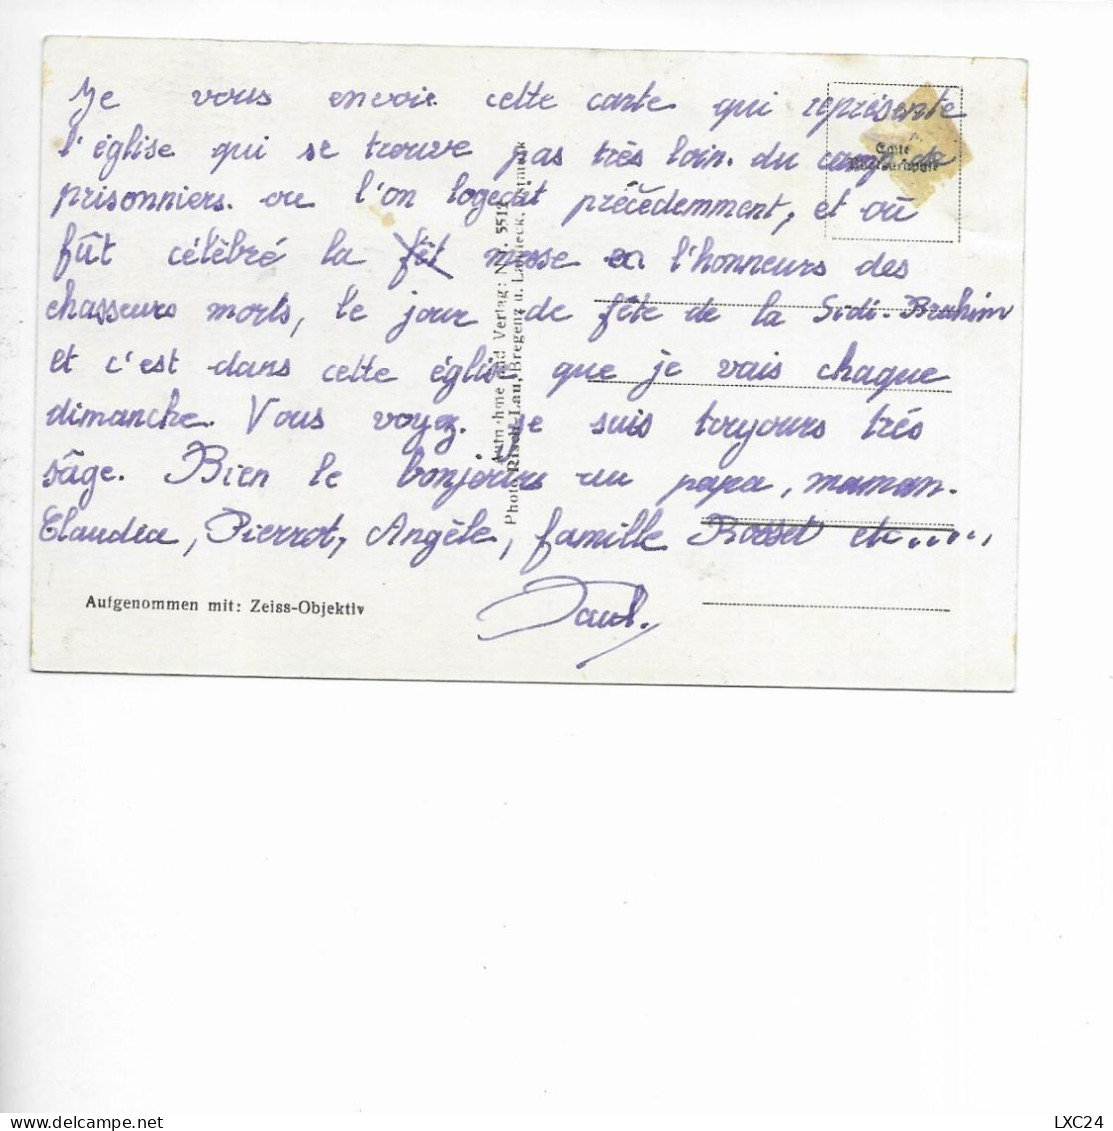 Je vous envoie cette carte qui représente
l'église qui se trouve pas très loin. du camp de
prisonniers. ou l'on logeait précédemment, et où
fût célèbré la fêt messe en l'honneurs des
chasseurs morts, le jour de fête de la Sidi-Brahim
et c'est dans cette église que je vais chaque
dimanche. Vous voyez. je suis toujours très
sâge. Bien le bonjours au papa, maman.
Claudia, Pierrot, Angèle, famille Rosset etc.....
Paul.
Aufgenommen mit: Zeiss-Objektiv
Aufnahme und Verlag: Nr. 5517
Photo Risch-Lau, Bregenz u.
LXC24